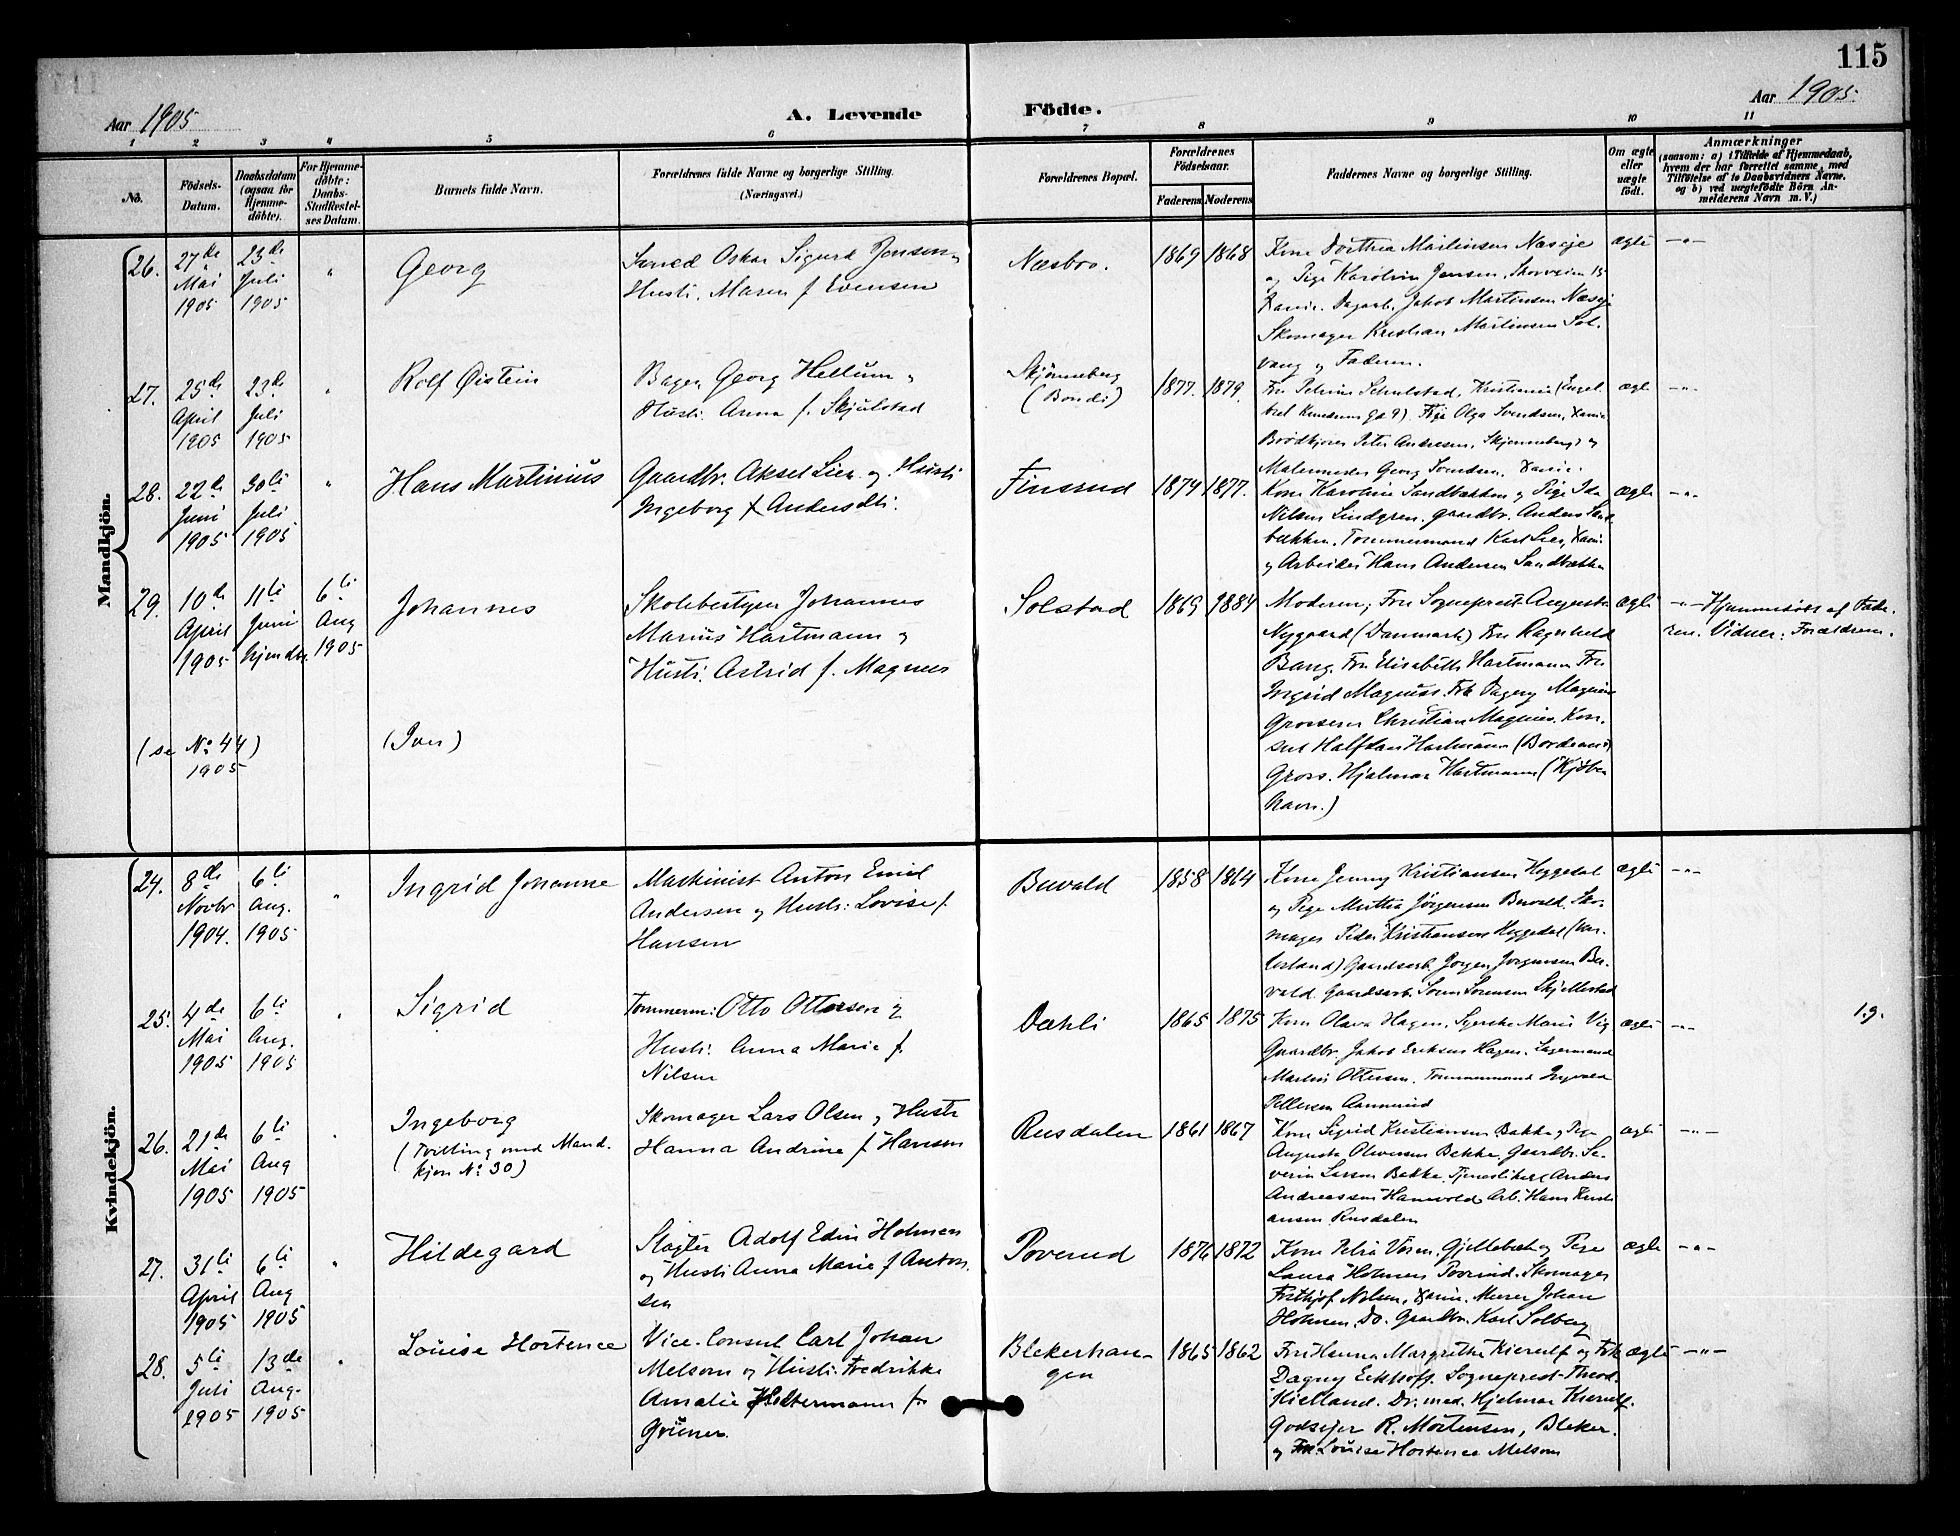 115
Aar 1905
A. Levende Födte.
Aar 1905.
1 2 3 4 5 6 7 8 9 10 11
No.
Födsels-Datum.
Daabsdatum (ogsaa for Hjemme-döbte).
For Hjemme-döbte: Daabs-Stadfæstel-ses Datum.
Barnets fulde Navn.
Forældrenes fulde Navne og borgerlige Stilling. (Næringsvei.)
Forældrenes Bopæl.
Forældrenes Födselsaar.
Faderens Moderens
Faddernes Navne og borgerlige Stilling.
Om ægte eller uægte födt.
Anmærkninger
(saasom: a) i Tilfælde af Hjemmedaab, hvem der har forrettet samme, med Tilföielse af to Daabsvidners Navne, og b) ved uægtefödte Börn Anmelderens Navn m. V.)
Mandkjön.
26.
27de Mai 1905
23de Juli 1905
"
Georg
Oskar Sigurd Jensen
Hustr. Maren f. Evensen
Næsbro.
1869 1868
Kone Dorthea Martinsen Næseje
og Pige Karoline Jensen,
Dagarb. Jakob Martinsen Næseje
Skomager Kristian Martinsen Sol-
vang og Faderen.
ægte
-"-
27.
25de April 1905
23de Juli 1905
"
Rolf Øistein
Bager Georg Hellum og
Hustr. Anna f. Skjulstad
Skjønneberg
(Bondi)
1877. 1879.
Fru Petrine Schulstad, Kristiania (Engel-
Pige Olga Svendsen,
Brødkjører Peter Andresen, Skjønneberg og
Malermester Georg Svendsen,
ægte
-"-
28.
22de Juni 1905
30te Juli 1905
"
Hans Martinius
Gaardbr. Aksel Lier og Hustr.
Ingeborg f. Andersdtr.
Finsrud
1874 1877.
Kone Karoline Sandbækken og Pige Ida
Nilsen Lindgren. Gaardbr. Anders Sand-
bækken. Tømmermand Karl Lier,
og Arbeider Hans Andersen Sandbækken
ægte
-"-
29.
10de April 1905
11te Juni hjemdbt.
6te Aug 1905
Johannes
Skolebestyrer Johannes
Marius Hartmann og
Hustr. Astrid f. Magnus
Solstad
1869 1884
Moderen, Fru Sogneprest Augusta
Nygaard (Danmark) Fru Ragnhild
Bang. Fru Elisabeth Hartmann Fru
Ingrid Magnus. Frk Dagny Magnus
Grosserer Christian Magnus, Kon-
sul Halfdan Hartmann (Bordeaux)
Gross. Hjalmar Hartmann (Kjøben-
havn.)
ægte
-"- Hjemmedøbt af Fade-
ren. Vidner: Forældrene.
(se No 44)
1905
(Iver)
Kvindekjön.
24.
8de Novbr 1904.
6te Aug. 1905
"
Ingrid Johanne
Maskinist Anton Emil
Andersen og Hustr: Lovise f.
Hansen
Buvald
1858 1864
Kone Jenny Kristiansen Heggedal
og Pige Martha Jørgensen Buvald. Sko-
mager Peder Kristiansen Heggedal
Gaardsarb. Jørgen Jørgensen Bu-
vald. Gaardsarb. Søren Sørensen Skjellestad
ægte
-"-
25.
4de Mai 1905
6te Aug. 1905
"
Sigrid
Tømmerm: Otto Ottersen og
Hustr. Anna Marie f.
Nilsen
Dæhli
1865 1875
Kone Olava Hagen, Syerske Marie Vig
Gaardbr. Jakob Eriksen Hagen. Lagermand
Martin Ottersen. Tømmermand Ingvald
Pettersen Aamerud
ægte
-"-
19.
26.
21de Mai 1905
6te Aug 1905
"
Ingeborg
(Tvilling med Mand-
kjøn No 30)
Skomager Lars Olsen og Hustr
Hanna Andrine f. Hansen
Rusdalen
1861 1867
Kone Sigrid Kristiansen Bakke og Pige
Augusta Olavesen Bakke. Gaardbr. Se-
verin Larsen Bakke. Tjenestekarl Anders
Andreassen Hanevold Arb. Hans Kristi-
ansen Rusdalen
ægte
-"-
27.
31te April 1905
6te Aug 1905
"
Hildegard
Slagter Adolf Edin Holmen
og Hustr Anna Marie f Anton-
sen
Poverud
1876 1872
Kone Petra Gjellebæk og Pige
Laura Holmen Poverud. Skomager
Frithjof Nilsen, Murer Johan
Holmen, Do. Gaardbr. Karl Solberg
ægte
-"-
28.
5te Juli 1905
13de Aug. 1905
"
Louise Hortence
Vice-Consul Carl Johan
Melsom og Hustr: Fredrikke
Amalie Heltermann f.
Grüner.
Blekerhau-
gen
1865 1862
Fru Hanna Margrethe Kierulf og Frk
Dagny Eckhoff. Sogneprest Theod.
Kielland. Dr. med. Hjalmar Kierulf.
Godseier R. Mortensen, Bleker.
og Louise Hortence Melsom
ægte
-"-